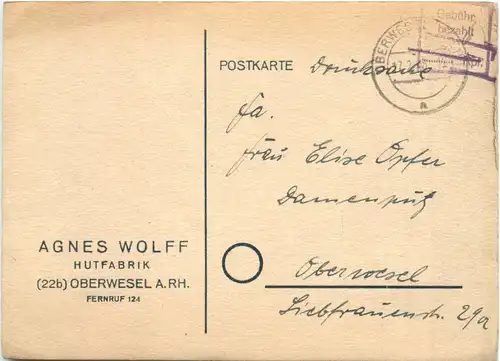 AGNES WOLFF
HUTFABRIK
(22b) OBERWESEL A. RH.
FERNRUF 124
POSTKARTE Drucksache
Gebühr
bezahlt
Rpf.
a
Fa.
Frau Elise Opfer
Damenputz
Oberwesel
Liebfrauenstr. 29a